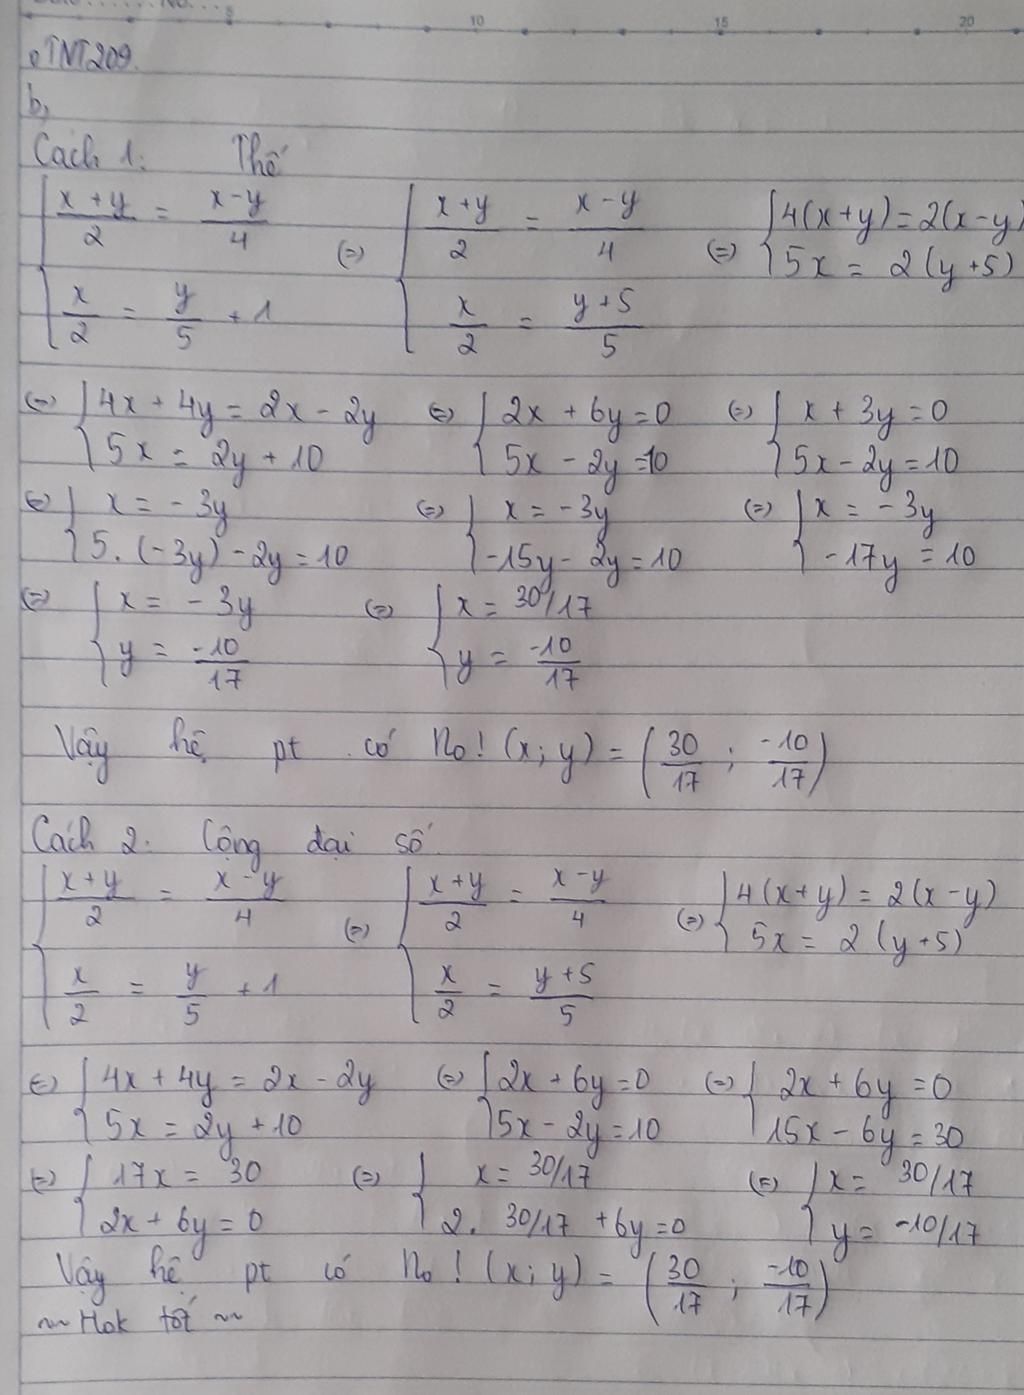 5 10 15 20
TNT209.
b,
Cách 1: Thế
{ (x+y)/2 = (x-y)/4 ; x/2 = y/5 + 1 (=) { (x+y)/2 = (x-y)/4 ; x/2 = (y+5)/5 (=) { 4(x+y) = 2(x-y) ; 5x = 2(y+5)
(=) { 4x + 4y = 2x - 2y ; 5x = 2y + 10 (=) { 2x + 6y = 0 ; 5x - 2y = 10 (=) { x + 3y = 0 ; 5x - 2y = 10
(=) { x = -3y ; 5.(-3y) - 2y = 10 (=) { x = -3y ; -15y - 2y = 10 (=) { x = -3y ; -17y = 10
(=) { x = -3y ; y = -10/17 (=) { x = 30/17 ; y = -10/17
Vậy hệ pt có no! (x; y) = (30/17 ; -10/17)
Cách 2: Cộng đại số
{ (x+y)/2 = (x-y)/4 ; x/2 = y/5 + 1 (=) { (x+y)/2 = (x-y)/4 ; x/2 = (y+5)/5 (=) { 4(x+y) = 2(x-y) ; 5x = 2(y+5)
(=) { 4x + 4y = 2x - 2y ; 5x = 2y + 10 (=) { 2x + 6y = 0 ; 5x - 2y = 10 (=) { 2x + 6y = 0 ; 15x - 6y = 30
(=) { 17x = 30 ; 2x + 6y = 0 (=) { x = 30/17 ; 2. 30/17 + 6y = 0 (=) { x = 30/17 ; y = -10/17
Vậy hệ pt có no! (x; y) = (30/17 ; -10/17)
~~ Hok tốt ~~